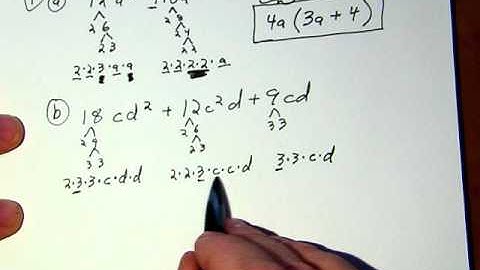 ⓐ 12 a
4a (3a + 4)
2 6 2 8
2 3 2 4
2 2
2·2·3·a·a 2·2·2·2·a
ⓑ 18cd² + 12c²d + 9cd
2 9 2 6 3 3
3 3 2 3
2·3·3·c·d·d 2·2·3·c·c·d 3·3·c·d